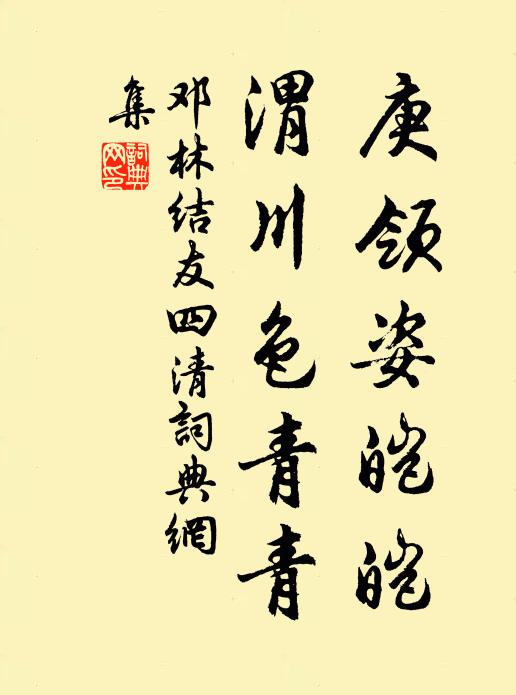 庾领姿皑皑
渭川色青青
邓林结友四清詞典網
集
詞典
网印